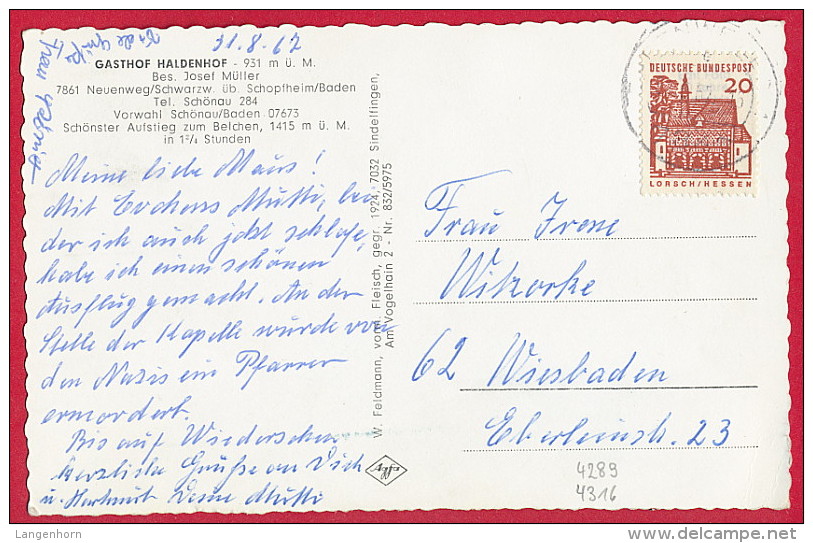 31.8.67
Viele Grüße
Frau
GASTHOF HALDENHOF - 931 m ü. M.
Bes. Josef Müller
7861 Neuenweg/Schwarzw. üb. Schopfheim/Baden
Tel. Schönau 284
Vorwahl Schönau/Baden 07673
Schönster Aufstieg zum Belchen, 1415 m ü. M.
in 1³/₄ Stunden
Meine liebe Maus!
Mit Evchens Mutti, bei
der ich auch jetzt schlafe,
habe ich einen schönen
Ausflug gemacht. An der
Stelle der Kapelle wurde von
den Nazis ein Pfarrer
ermordert.
Bis auf Wiedersehen
herzliche Grüße an Dich
u. Hartmut Deine Mutti
W. Feldmann, vorm. Fleisch, gegr. 1924, 7032 Sindelfingen,
Am Vogelhain 2 - Nr. 832/5975
Agfa
DEUTSCHE BUNDESPOST
20
LORSCH/HESSEN
Frau Irene
Witzorke
62 Wiesbaden
Eberleinstr. 23
4289
4316
Langenhorn